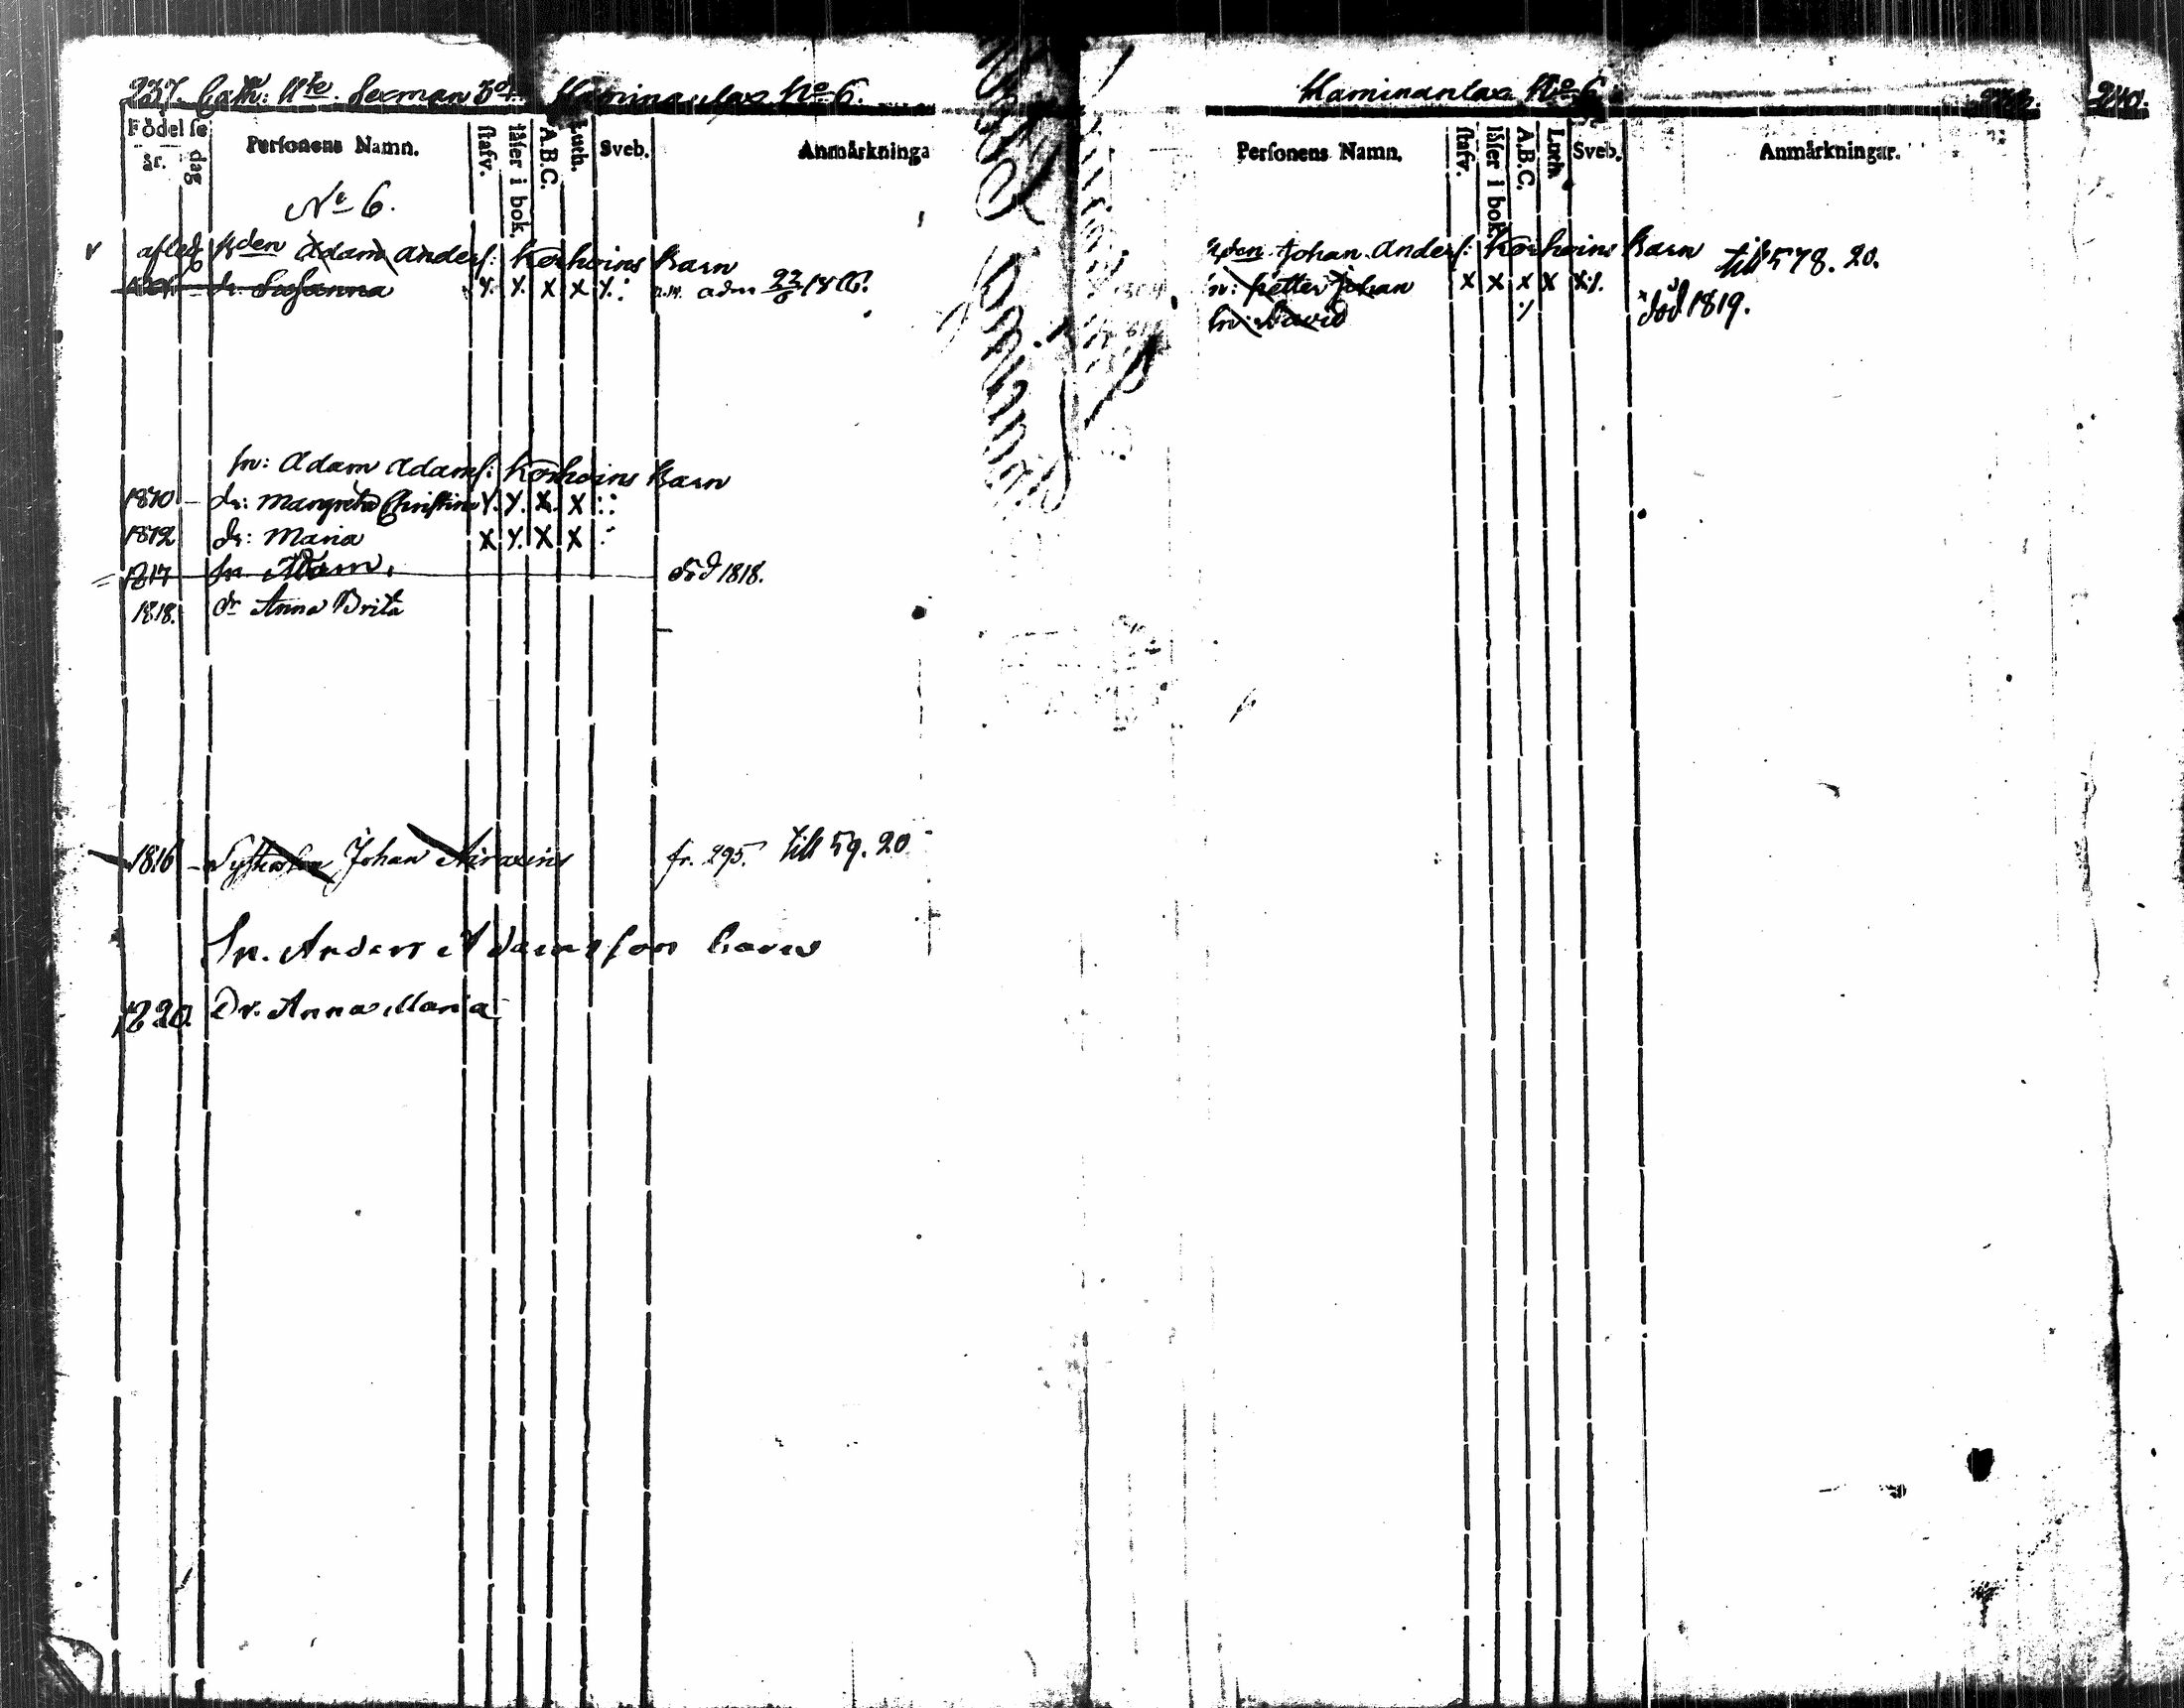 237. Cath: Ute. Sexman 3de. Haminanlax No 6.
Födelse
år. dag
Personens Namn.
stafv.
läser i bok.
A.B.C.
Luth.
Sveb.
Anmärkninga
No 6.
afled Bden Adam Anders: Korhoins Barn
dr. Susanna x. x. x x x. adm 22/6 1816.
sn: Adam Adams: Korhoins Barn
1810 - dr: Margreta Christina x. x. x. x
1812 dr: Maria x x. x x
1817 sn. Adam. död 1818.
1818. dr Anna Brita
1816 - Johan fr. 295. till 59. 20
Sn. Anders Adamsson barn
1820. Dr. Anna Maria
Haminanlax No 6
240.
Personens Namn.
stafv.
läser i bok.
A.B.C.
Luth.
Sveb.
Anmärkningar.
Bden Johan Anders: Korhoins Barn till 578. 20.
sn: Petter Johan x x x x x
sn: David död 1819.